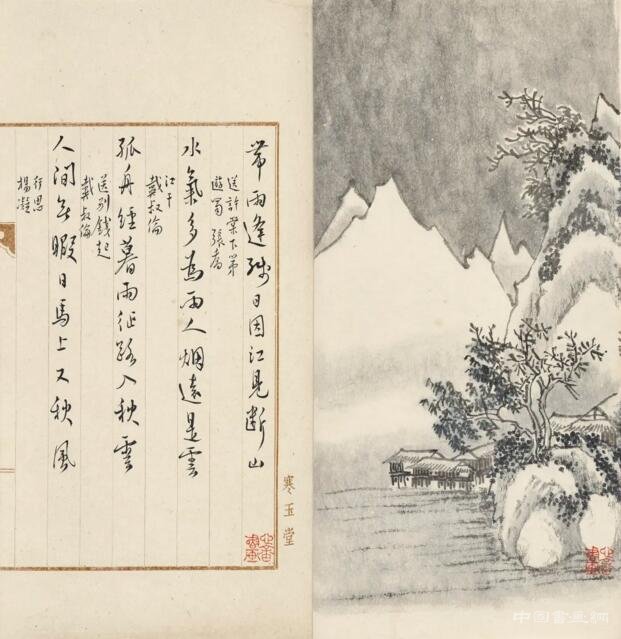 帶雨逢殘日因江見斷山
送許棠下第
遊蜀 張喬
水氣多為雨人烟遠是雲
江干
戴叔倫
孤舟經暮雨征路入秋雲
送別錢起
戴叔倫
人間無暇日馬上又秋風
行思
楊凝
寒玉堂
中国書画網